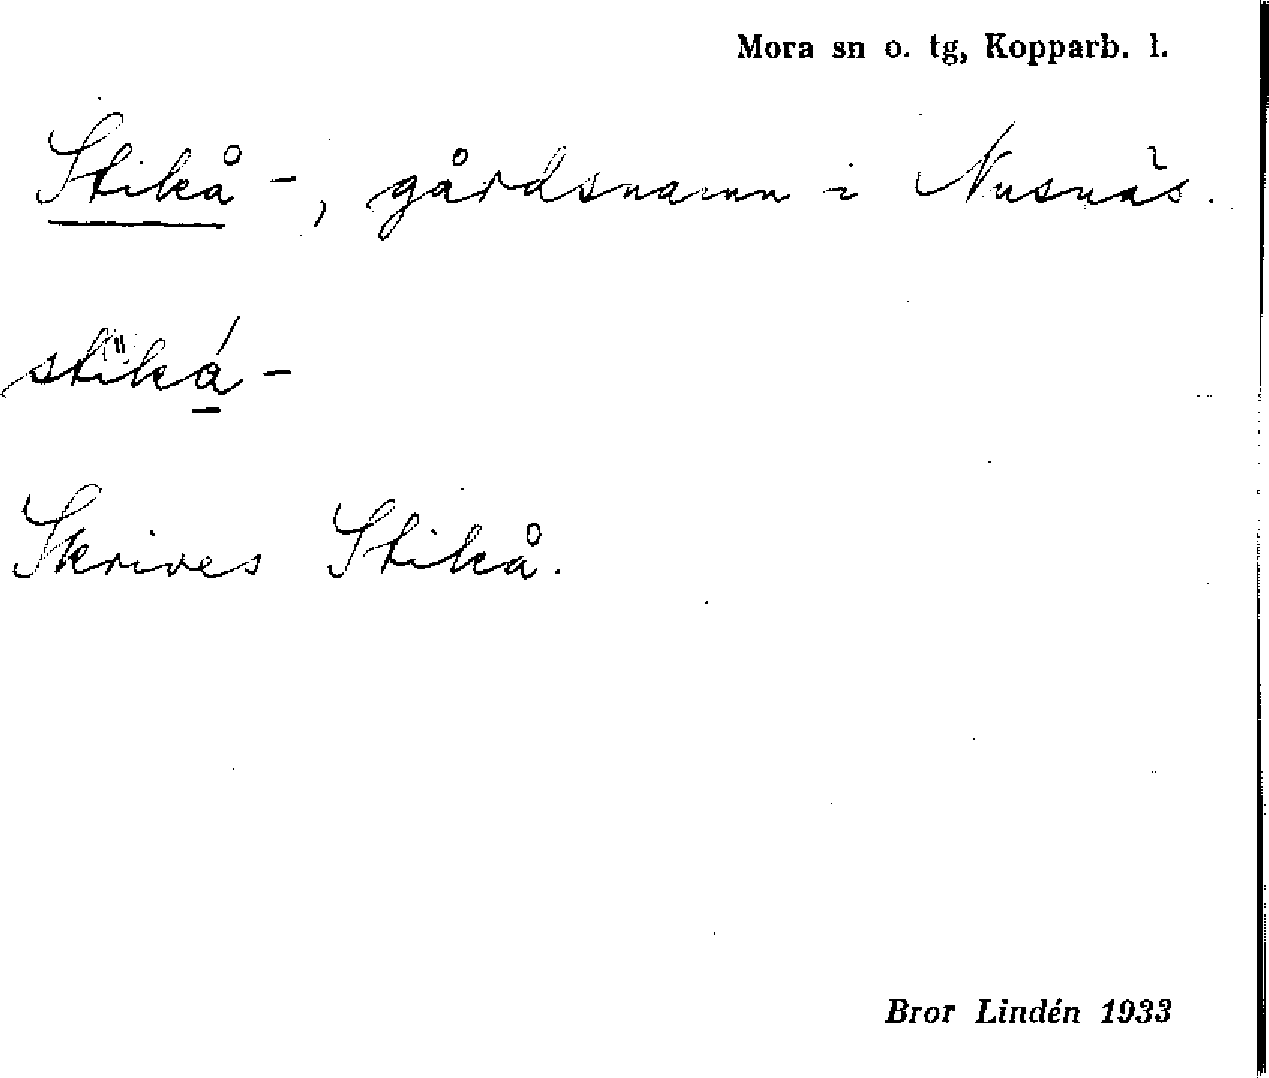 Mora sn o. tg, Kopparb. l.
Stikå-, gårdsnamn i Nusnäs.
stiká̱-
Skrives Stikå.
Bror Lindén 1933